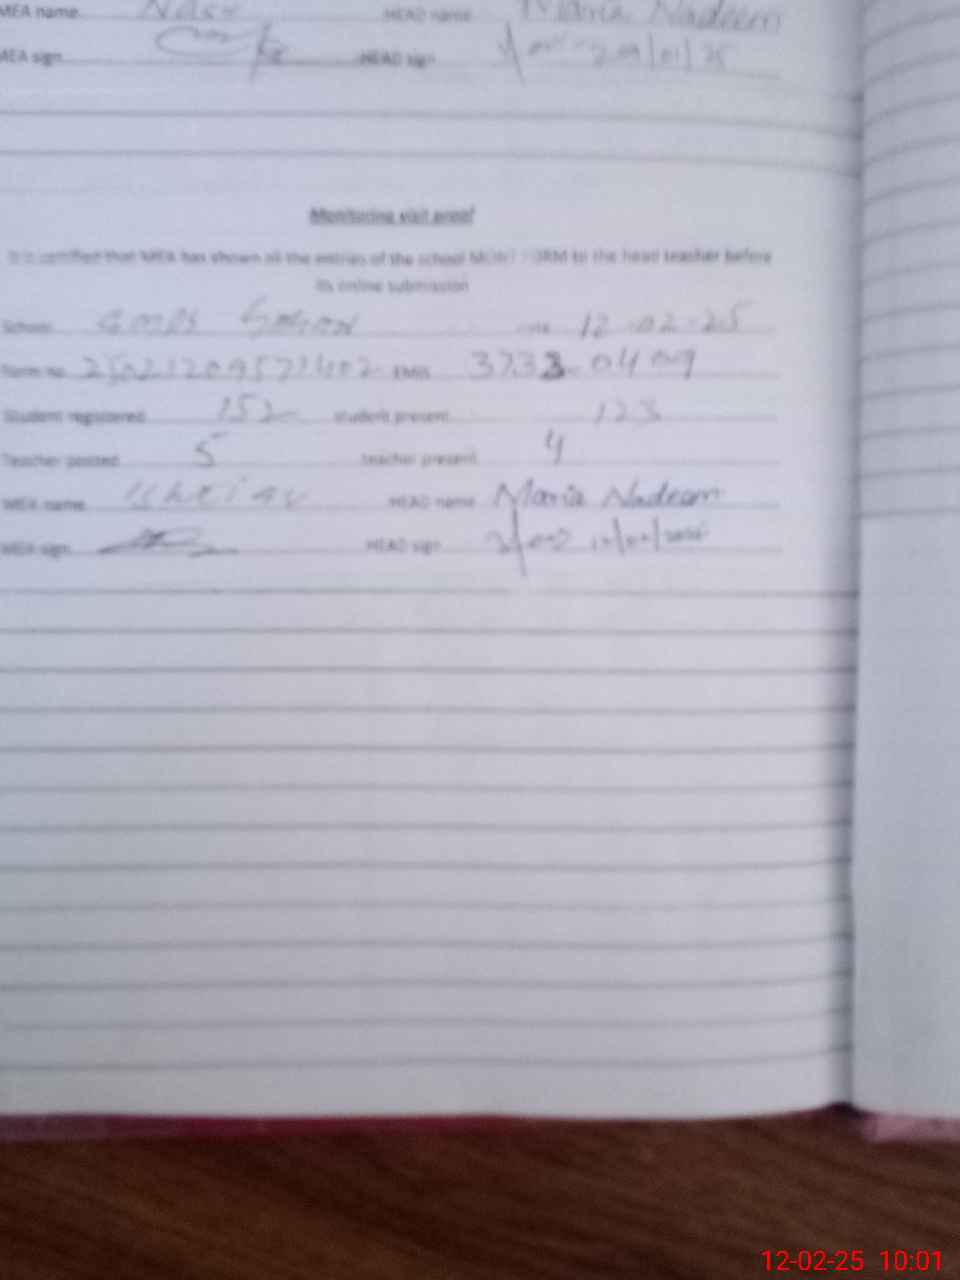 MEA name Nasr HEAD name Maria Nadeem
MEA sign HEAD sign 29/01/25
Monitoring visit proof
It is certified that MEA has shown all the entries of the school MONT FORM to the head teacher before
its online submission
School GMPS 12-02-25
Form no. EMIS 37330409
Student registered 152 student present 123
Teacher posted 5 teacher present 4
MEA name HEAD name Maria Nadeem
MEA sign HEAD sign
12-02-25 10:01